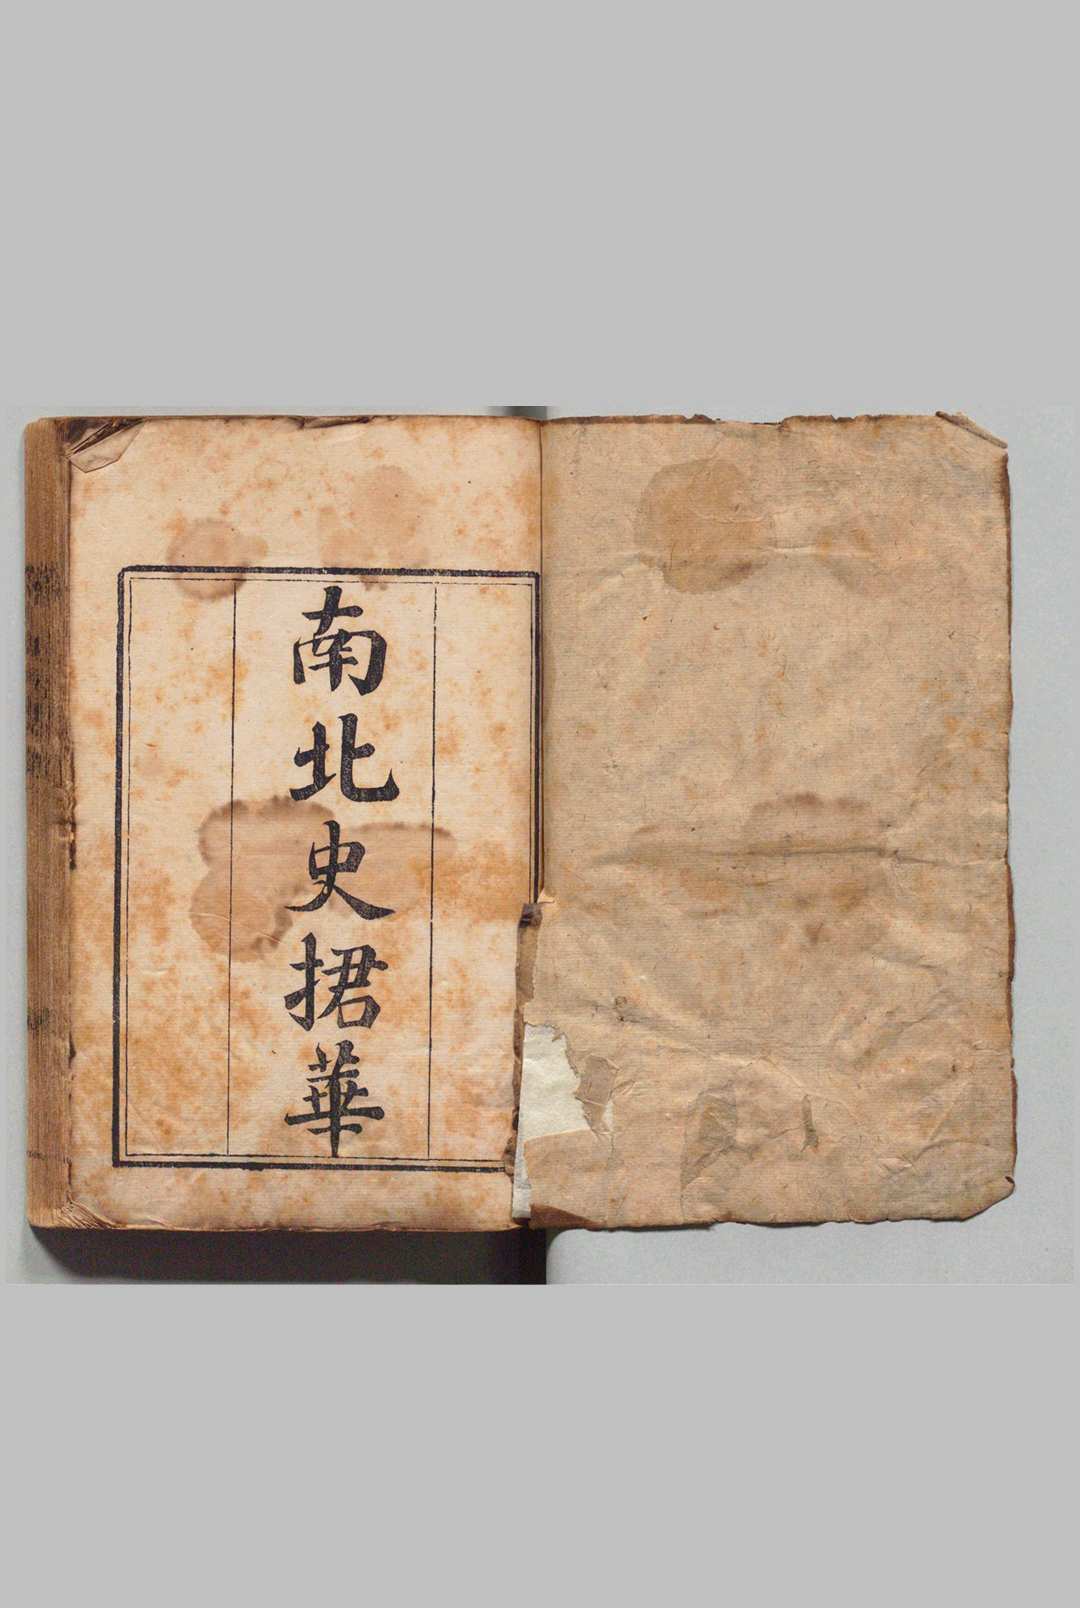 南北史捃華